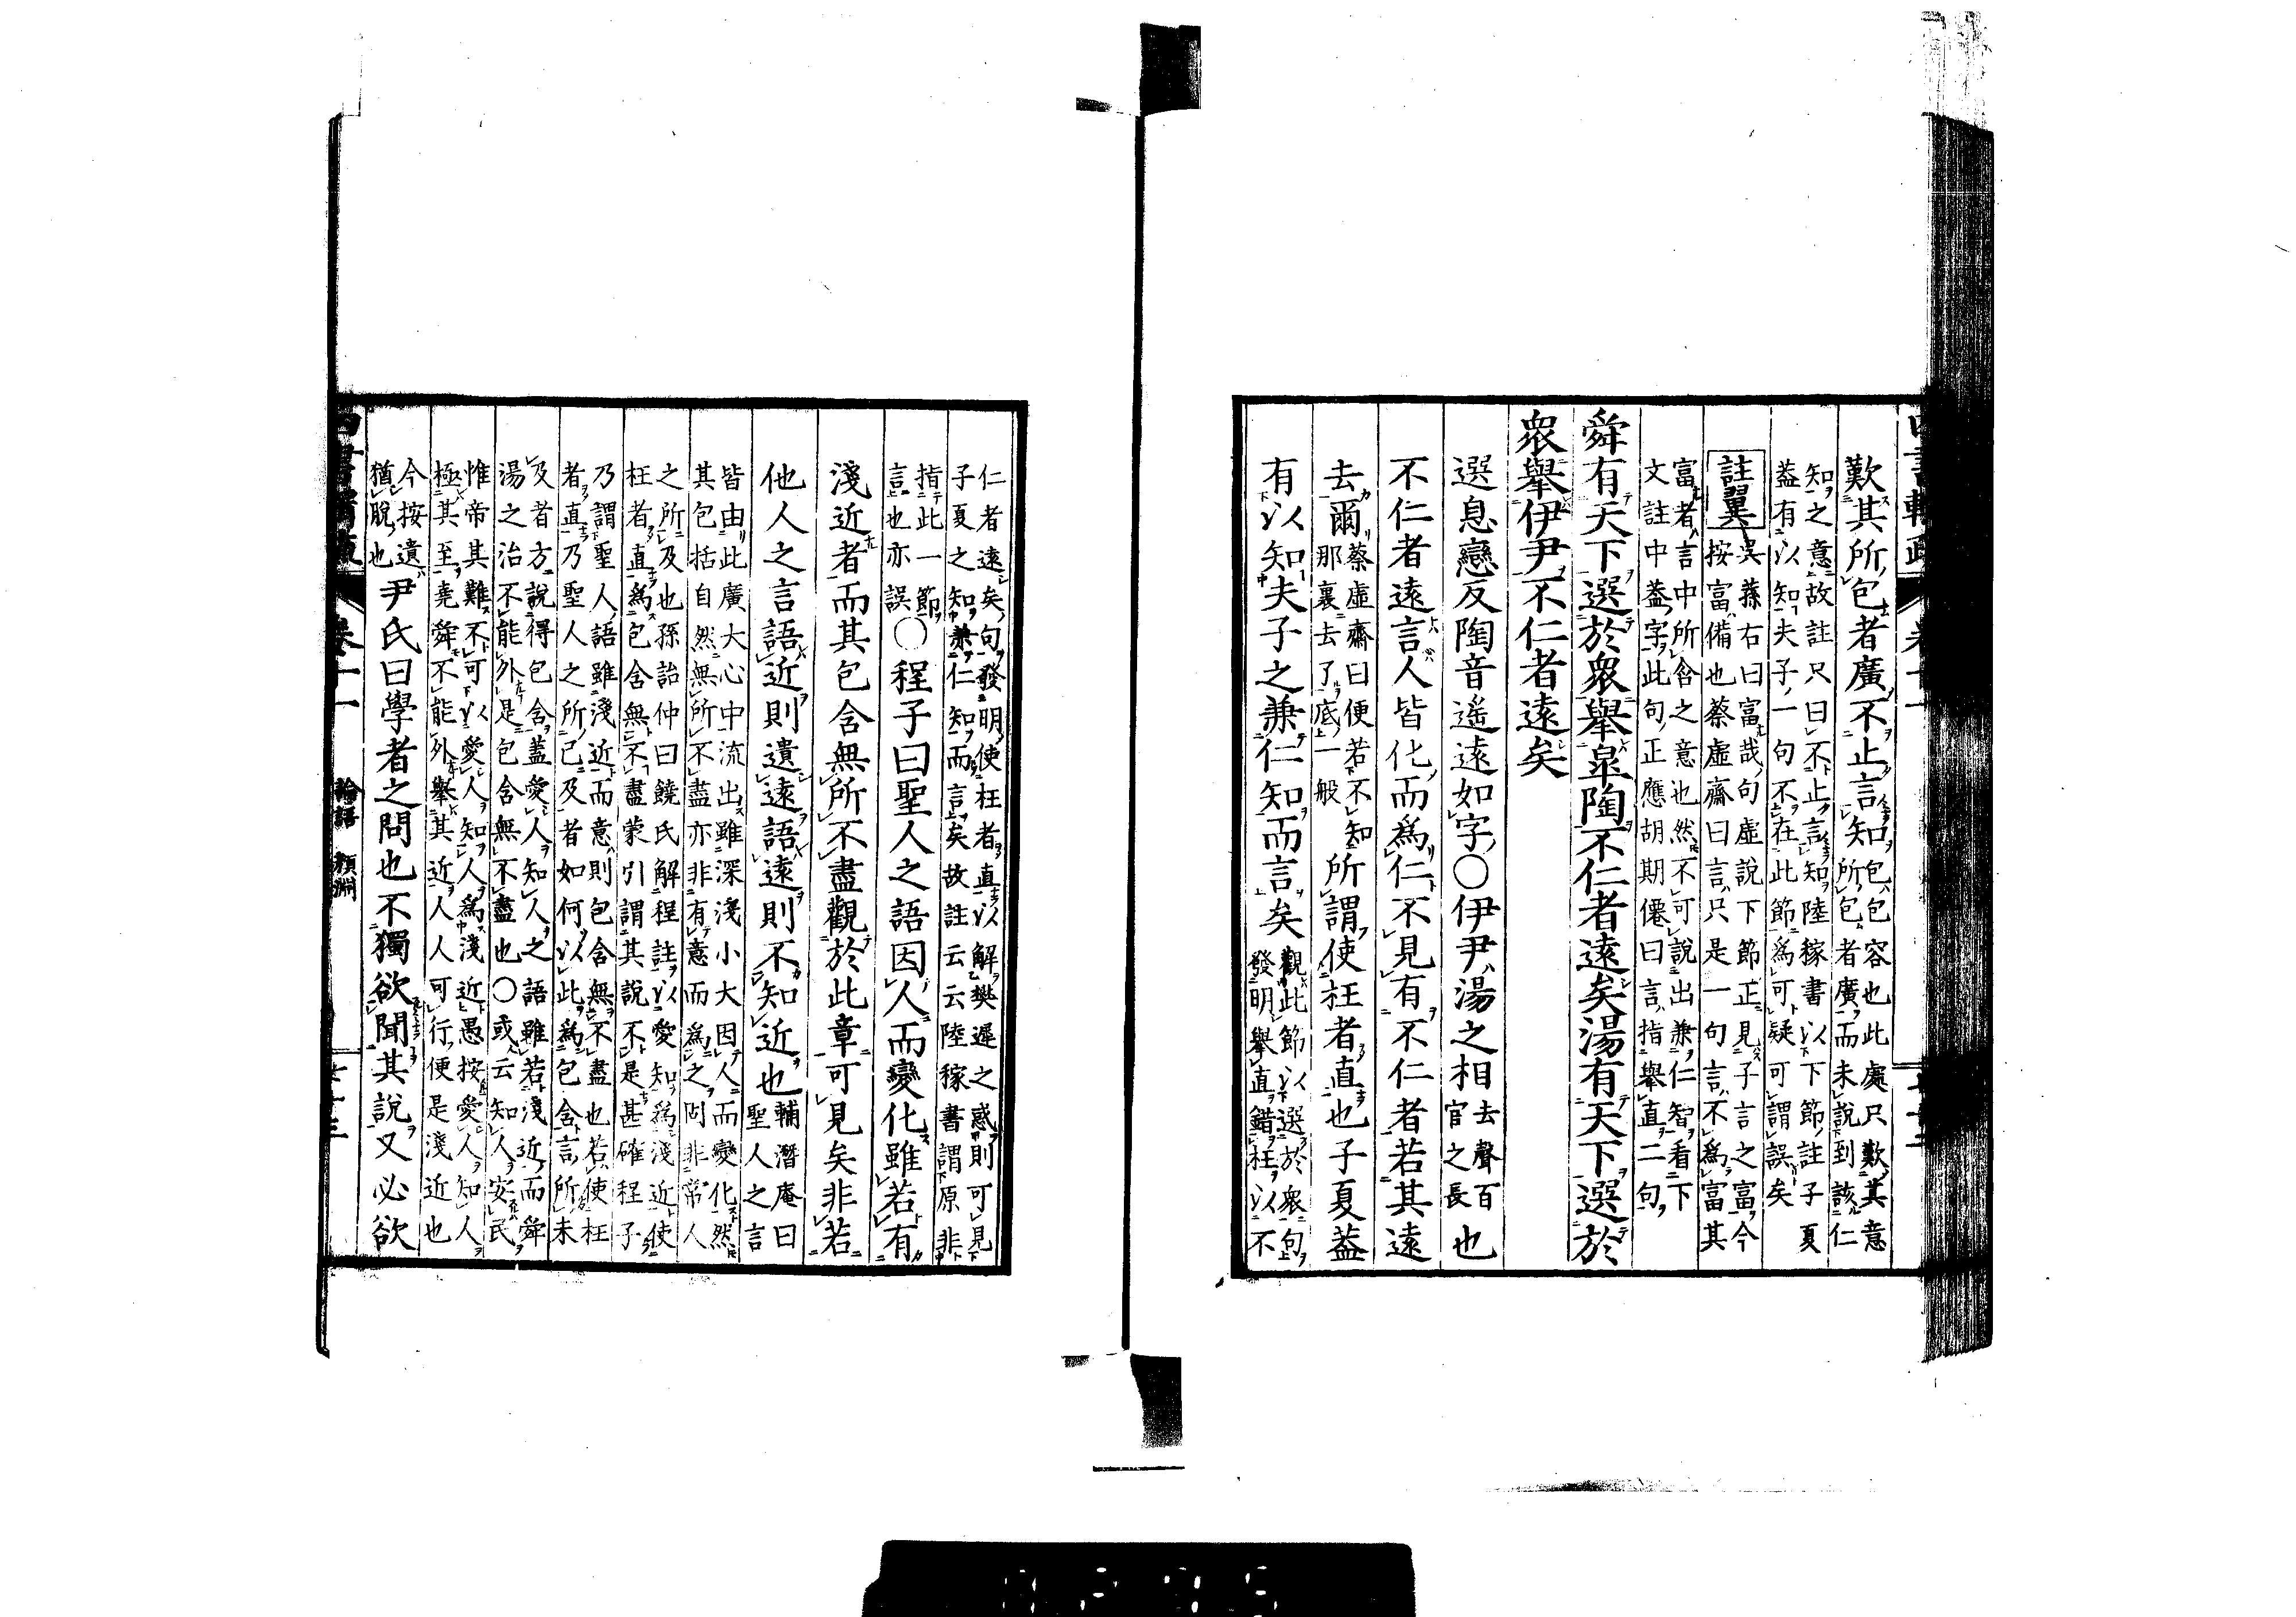 歎其所包者廣不止言知包包容也此處只歎其意
所包者廣而未說到該仁
知之意故註只曰不止言知陸稼書以下節註子夏
蓋有以知夫子一句不在此節爲可疑可謂誤矣
註翼吳蓀右曰富哉句虛說下節正見子言之富今
按富備也蔡虛齋曰言只是一句言不爲富其
富者言中所含之意也然不可說出兼仁智看下
文註中蓋字此句正應胡期僊曰言指舉直二句
舜有天下選於衆舉皐陶不仁者遠矣湯有天下選於
衆舉伊尹不仁者遠矣
選息戀反陶音遥遠如字○伊尹湯之相去聲百官之長也
不仁者遠言人皆化而爲仁不見有不仁者若其遠
去爾蔡虛齋曰便若不知那裏去了底一般所謂使枉者直也子夏蓋
有以知夫子之兼仁知而言矣觀此節以選於衆句
發明舉直錯枉以不
仁者遠矣句發明使枉者直以解樊遲之惑則可見
子夏之知兼仁知而言矣故註云云陸稼書謂原非
指此一節
言也亦誤○程子曰聖人之語因人而變化雖若有
淺近者而其包含無所不盡觀於此章可見矣非若
他人之言語近則遺遠語遠則不知近也輔潛庵曰
聖人之言
皆由此廣大心中流出雖深淺小大因人而變化然
其包括自然無所不盡亦非有意而爲之固非常人
之所及也孫詒仲曰饒氏解程註以愛知爲淺近使
枉者直爲包含無不盡蒙引謂其說不是甚確程子
乃謂聖人語雖淺近而意則包含無不盡也若使枉
者直乃聖人之所已及者如何以此爲包含言所未
及者方說得包含蓋愛人知人之語雖若淺近而舜
湯之治不能外是包含無不盡也○或云知人安民
惟帝其難不可以愛人知人爲淺近愚按愛人知人
極其至堯舜不能外舉其近人人可行便是淺近也
今按遺
猶脫也尹氏曰學者之問也不獨欲聞其說又必欲
卷十一 論語 顏淵